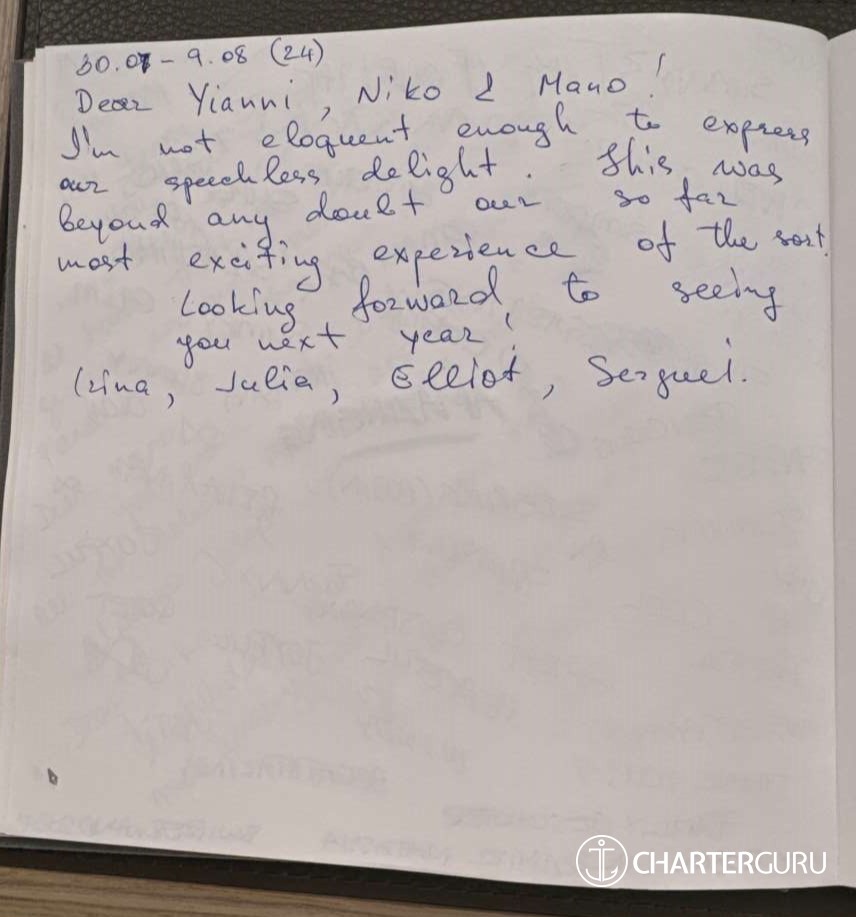 30.07 - 9.08 (24)
Dear Yianni, Niko & Mano!
I'm not eloquent enough to express
our speechless delight. This was
beyond any doubt our so far
most exciting experience of the sort.
Looking forward to seeing
you next year!
Irina, Julia, Elliot, Serguei.
CHARTERGURU